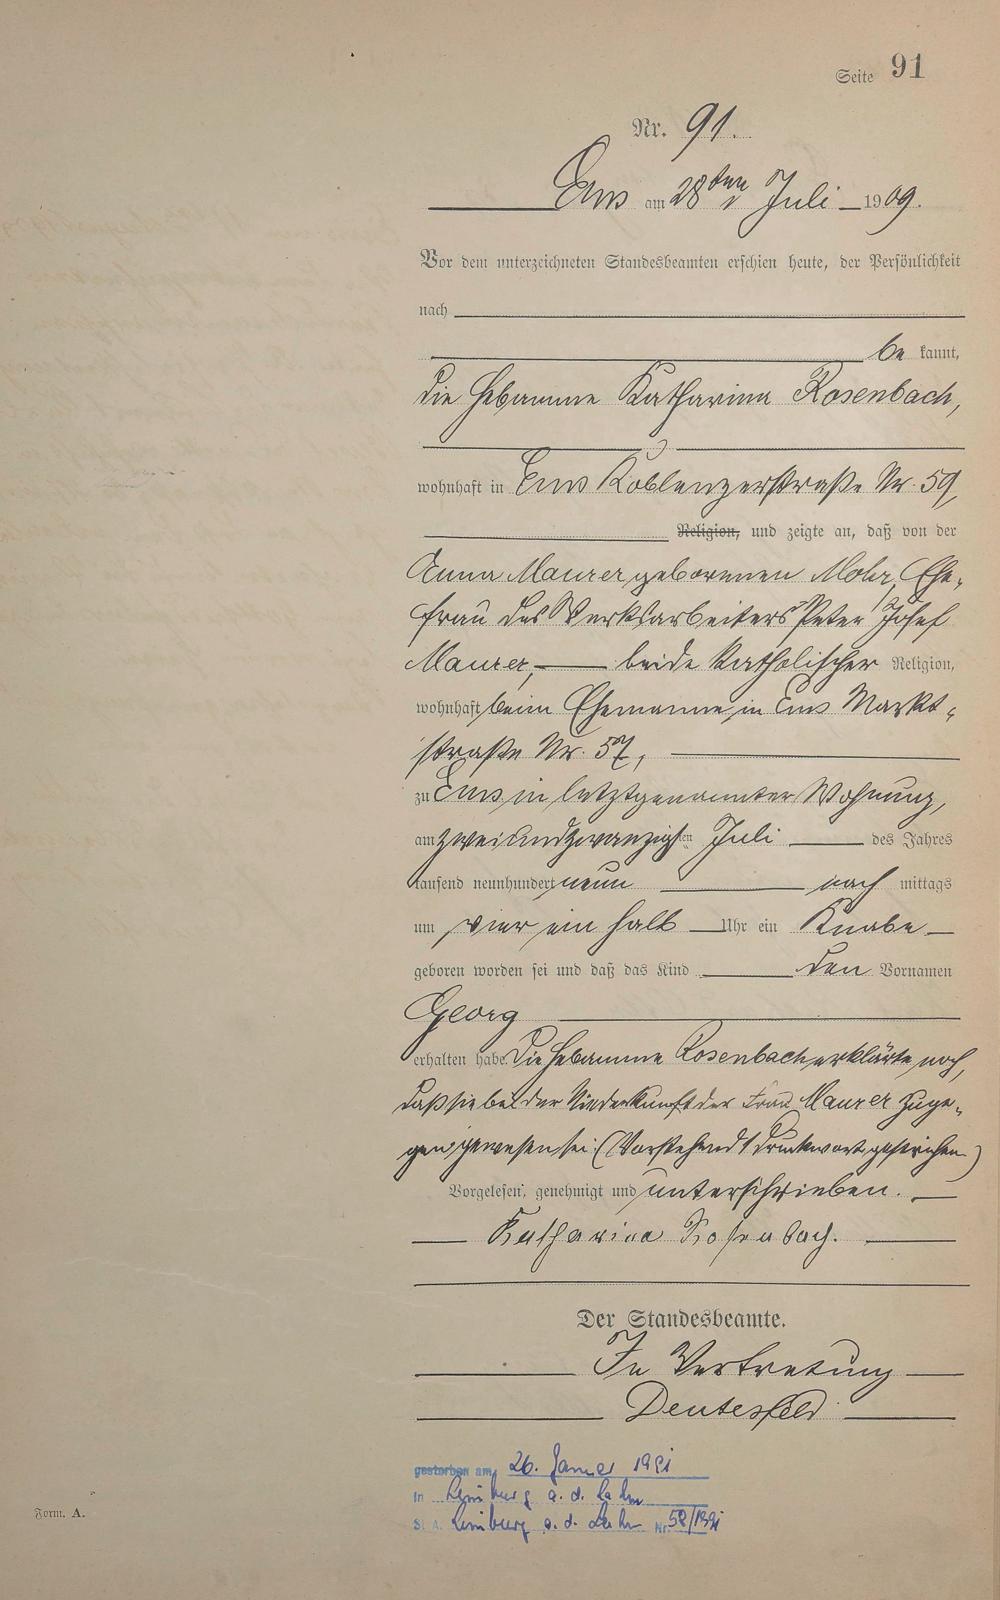 Seite 91
Nr. 91.
Ems am 28ten Juli 1909.
Vor dem unterzeichneten Standesbeamten erschien heute, der Persönlichkeit
nach
be kannt,
die Hebamme Katharina Rosenbach,
wohnhaft in Ems Koblenzerstraße Nr. 59,
Religion, und zeigte an, daß von der
Anna Maurer geborenen Mohr, Ehe-
frau des Werksarbeiters Peter Josef
Maurer, beide katholischer Religion,
wohnhaft beim Ehemanne, in Ems Markt-
straße Nr. 57,
zu Ems in letztgenannter Wohnung,
am zweiundzwanzigsten Juli des Jahres
tausend neunhundert neun nach mittags
um vier ein halb Uhr ein Knabe
geboren worden sei und daß das Kind den Vornamen
Georg
erhalten habe. Die Hebamme Rosenbach erklärte noch,
daß sie bei der Niederkunft der Frau Maurer zuge-
gen gewesen sei. (Vorstehend 1 Druckwort gestrichen)
Vorgelesen, genehmigt und unterschrieben.
Katharina Rosenbach.
Der Standesbeamte.
In Vertretung
gestorben am 26. Januar
in Limburg a. d. Lahn
St. A. Limburg a. d. Lahn Nr.
Form. A.